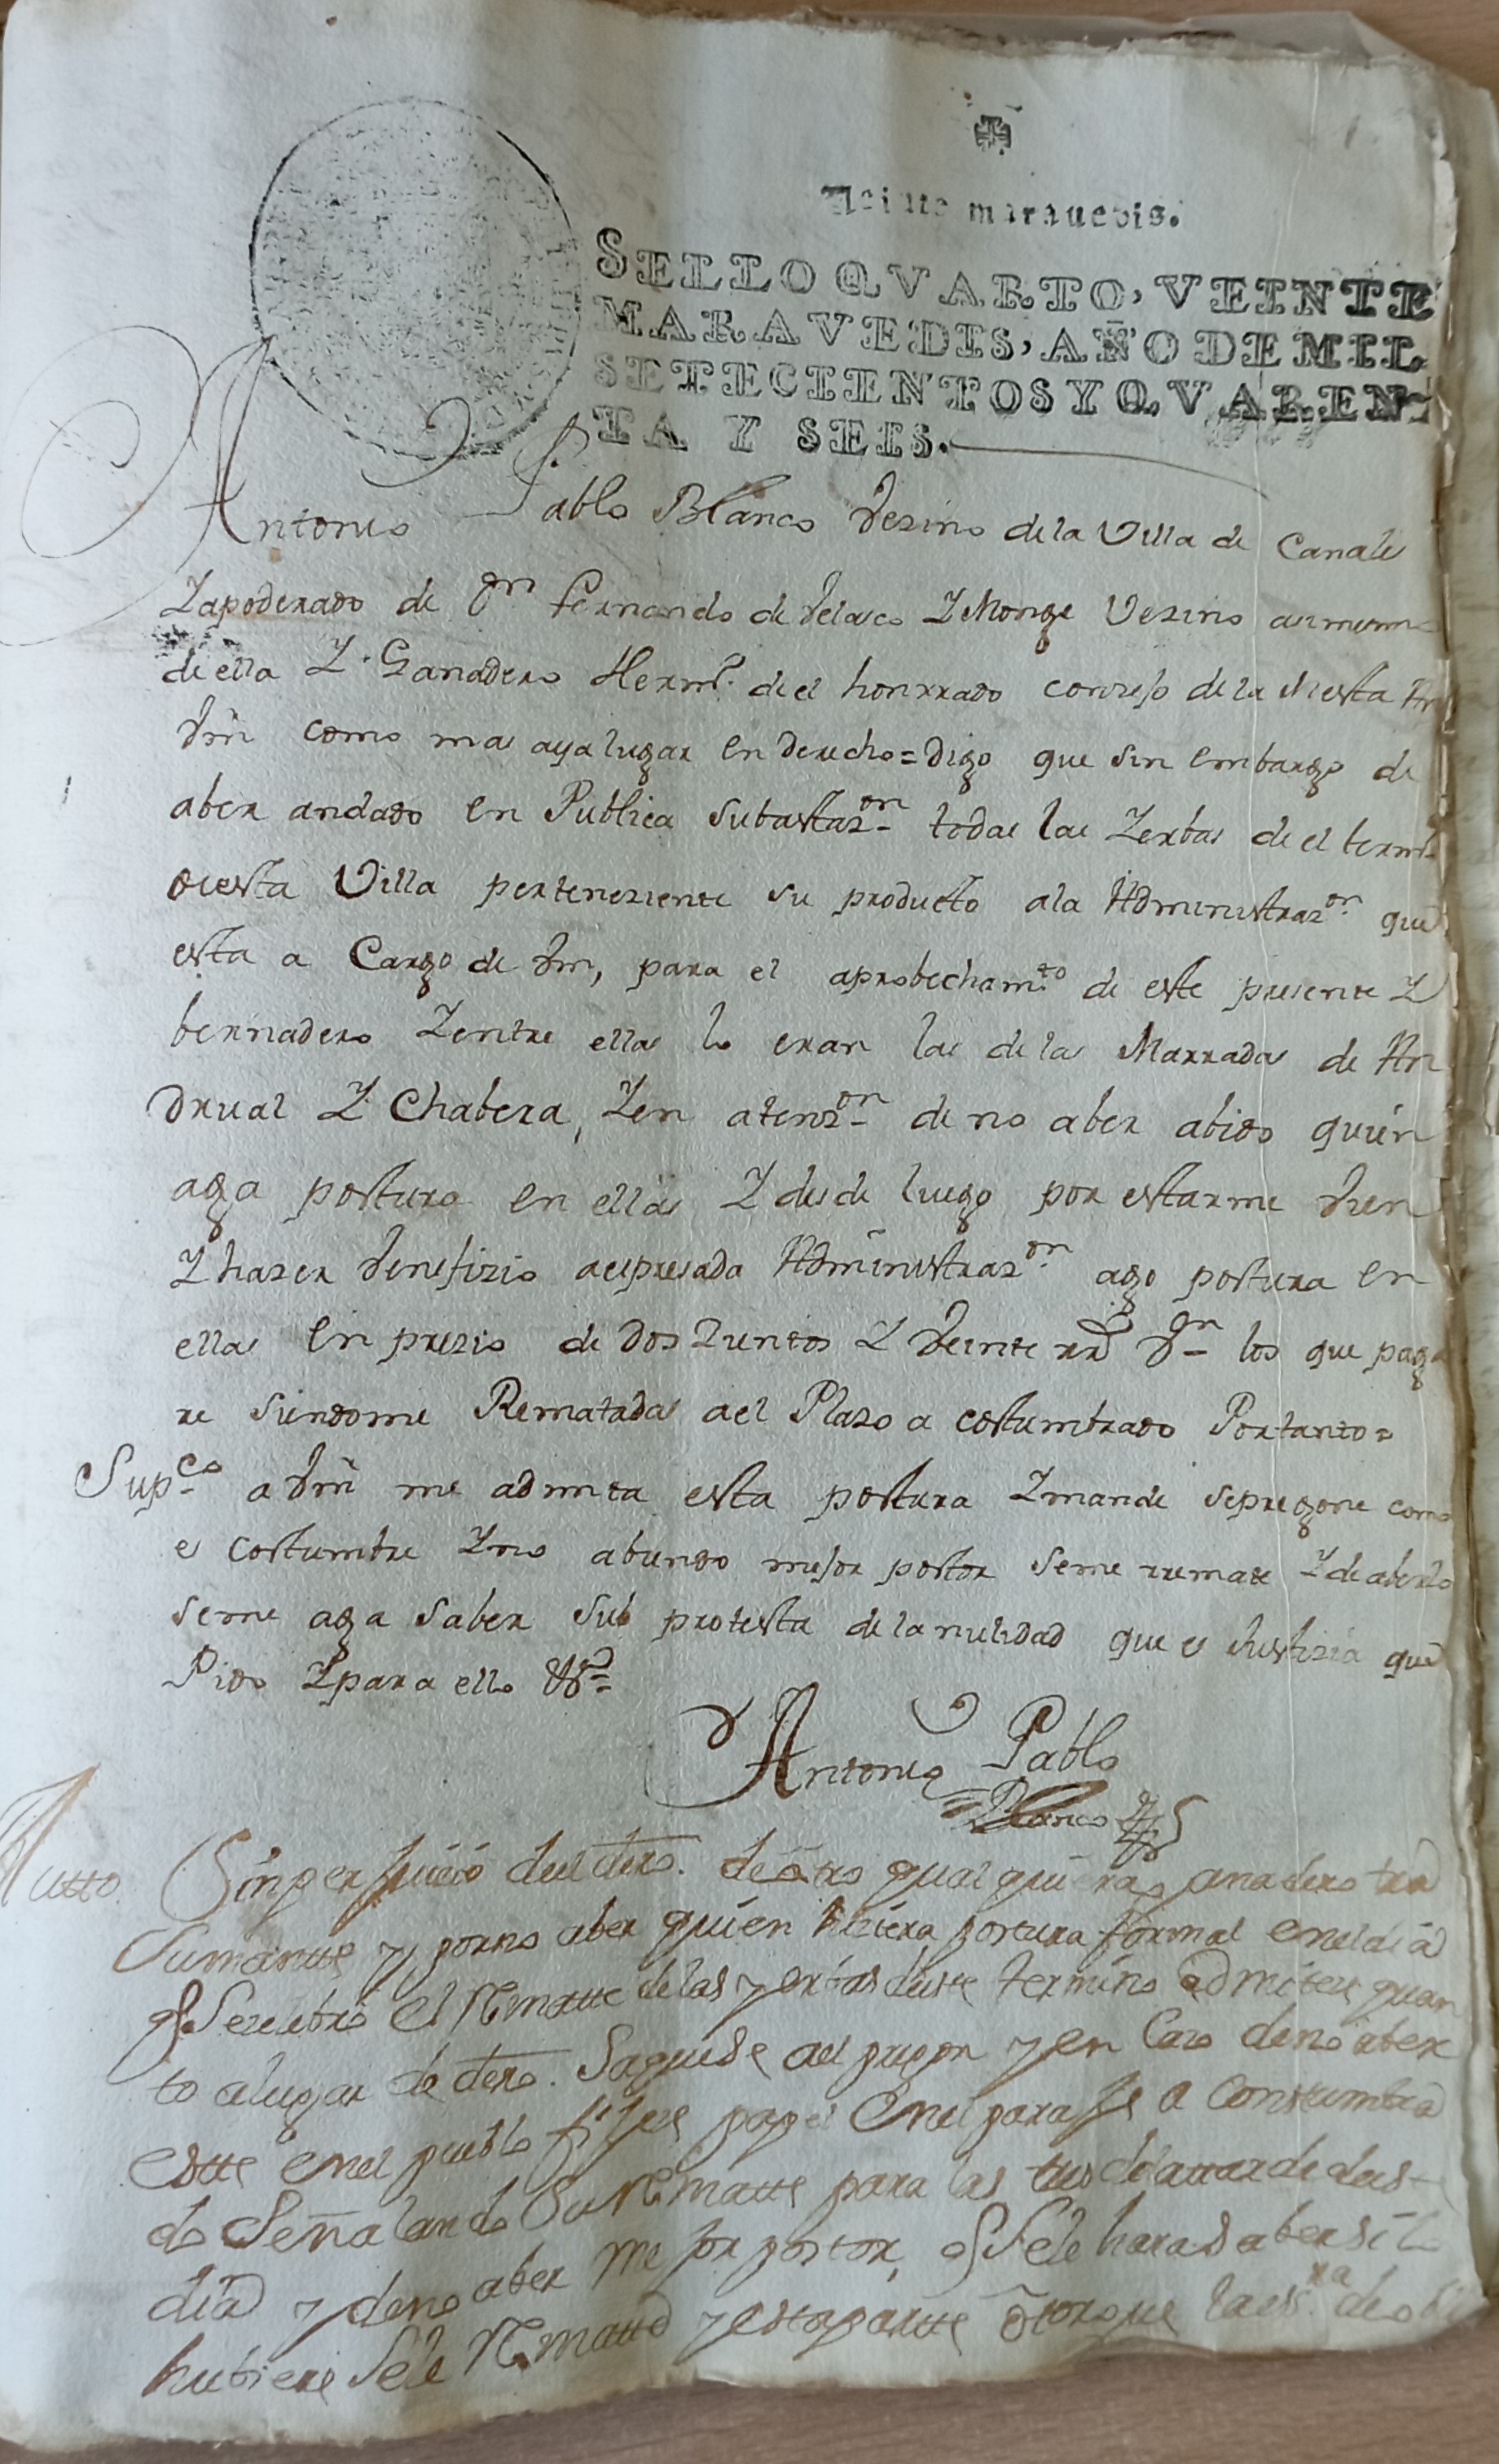 Veinte maravedis.
SELLO QVARTO, VEINTE
MARAVEDIS, AÑO DE MIL
SETECIENTOS Y QVAREN-
TA Y SEIS.
Antonio Pablo Blanco Vezino de la Villa de Canales
Yapoderado de Dn Fernando de Velasco Y Monge Vezino asimismo
de ella Y Ganadero Herm.º de el honrrado conzejo de la Mesta An
Vm como mas aya lugar en derecho = Digo que sin embargo de
aber andado en Publica Subastazon todas las Yerbas de el termº
desta Villa perteneziente su producto ala Administrazon que
esta a Cargo de Vm, para el aprobechamto de este presente Y
bernadero Yentre ellas lo eran las de las Marradas de An
drual Y Chabera, Yen atenzon de no aber abido quien
aga postura en ellas Y desde luego por estarme vien
Y hazer venefizio aespresada Administrazon ago postura en
ellas en prezio de Dos Zientos Y Veinte rrs Von los que paga
re siendome Rematadas ael Plazo a costumbrado Portanto =
Supco a Vm me admita esta postura Ymande sepregone como
es costumbre Yno abiendo mejor postor seme rremate Y de aberlo
seme aga saber sub protesta de la nulidad que es Justizia que
Pido Ypara ello &ª
Antonio Pablo
Blanco
Autto. Sinperjuicio deel dero. de otro qualquiera ganadero tra
sumante y porno aber quien hiziera postura formal eneldia
q Secelebro el Rmatte delas yerbas deste termino admitese quan
to alugar de dero. Saquese ael pregon y en Caso deno aber
este enel pueblo fijese papel enel paraje a Constumbra
do Señalando Su Rmatte para las tres dela tarde deeste
dia y deno aber mejor postor, q Sele hara saber si lo
hubiere Sele Rmatte y estaparte otorgue la essra de obli